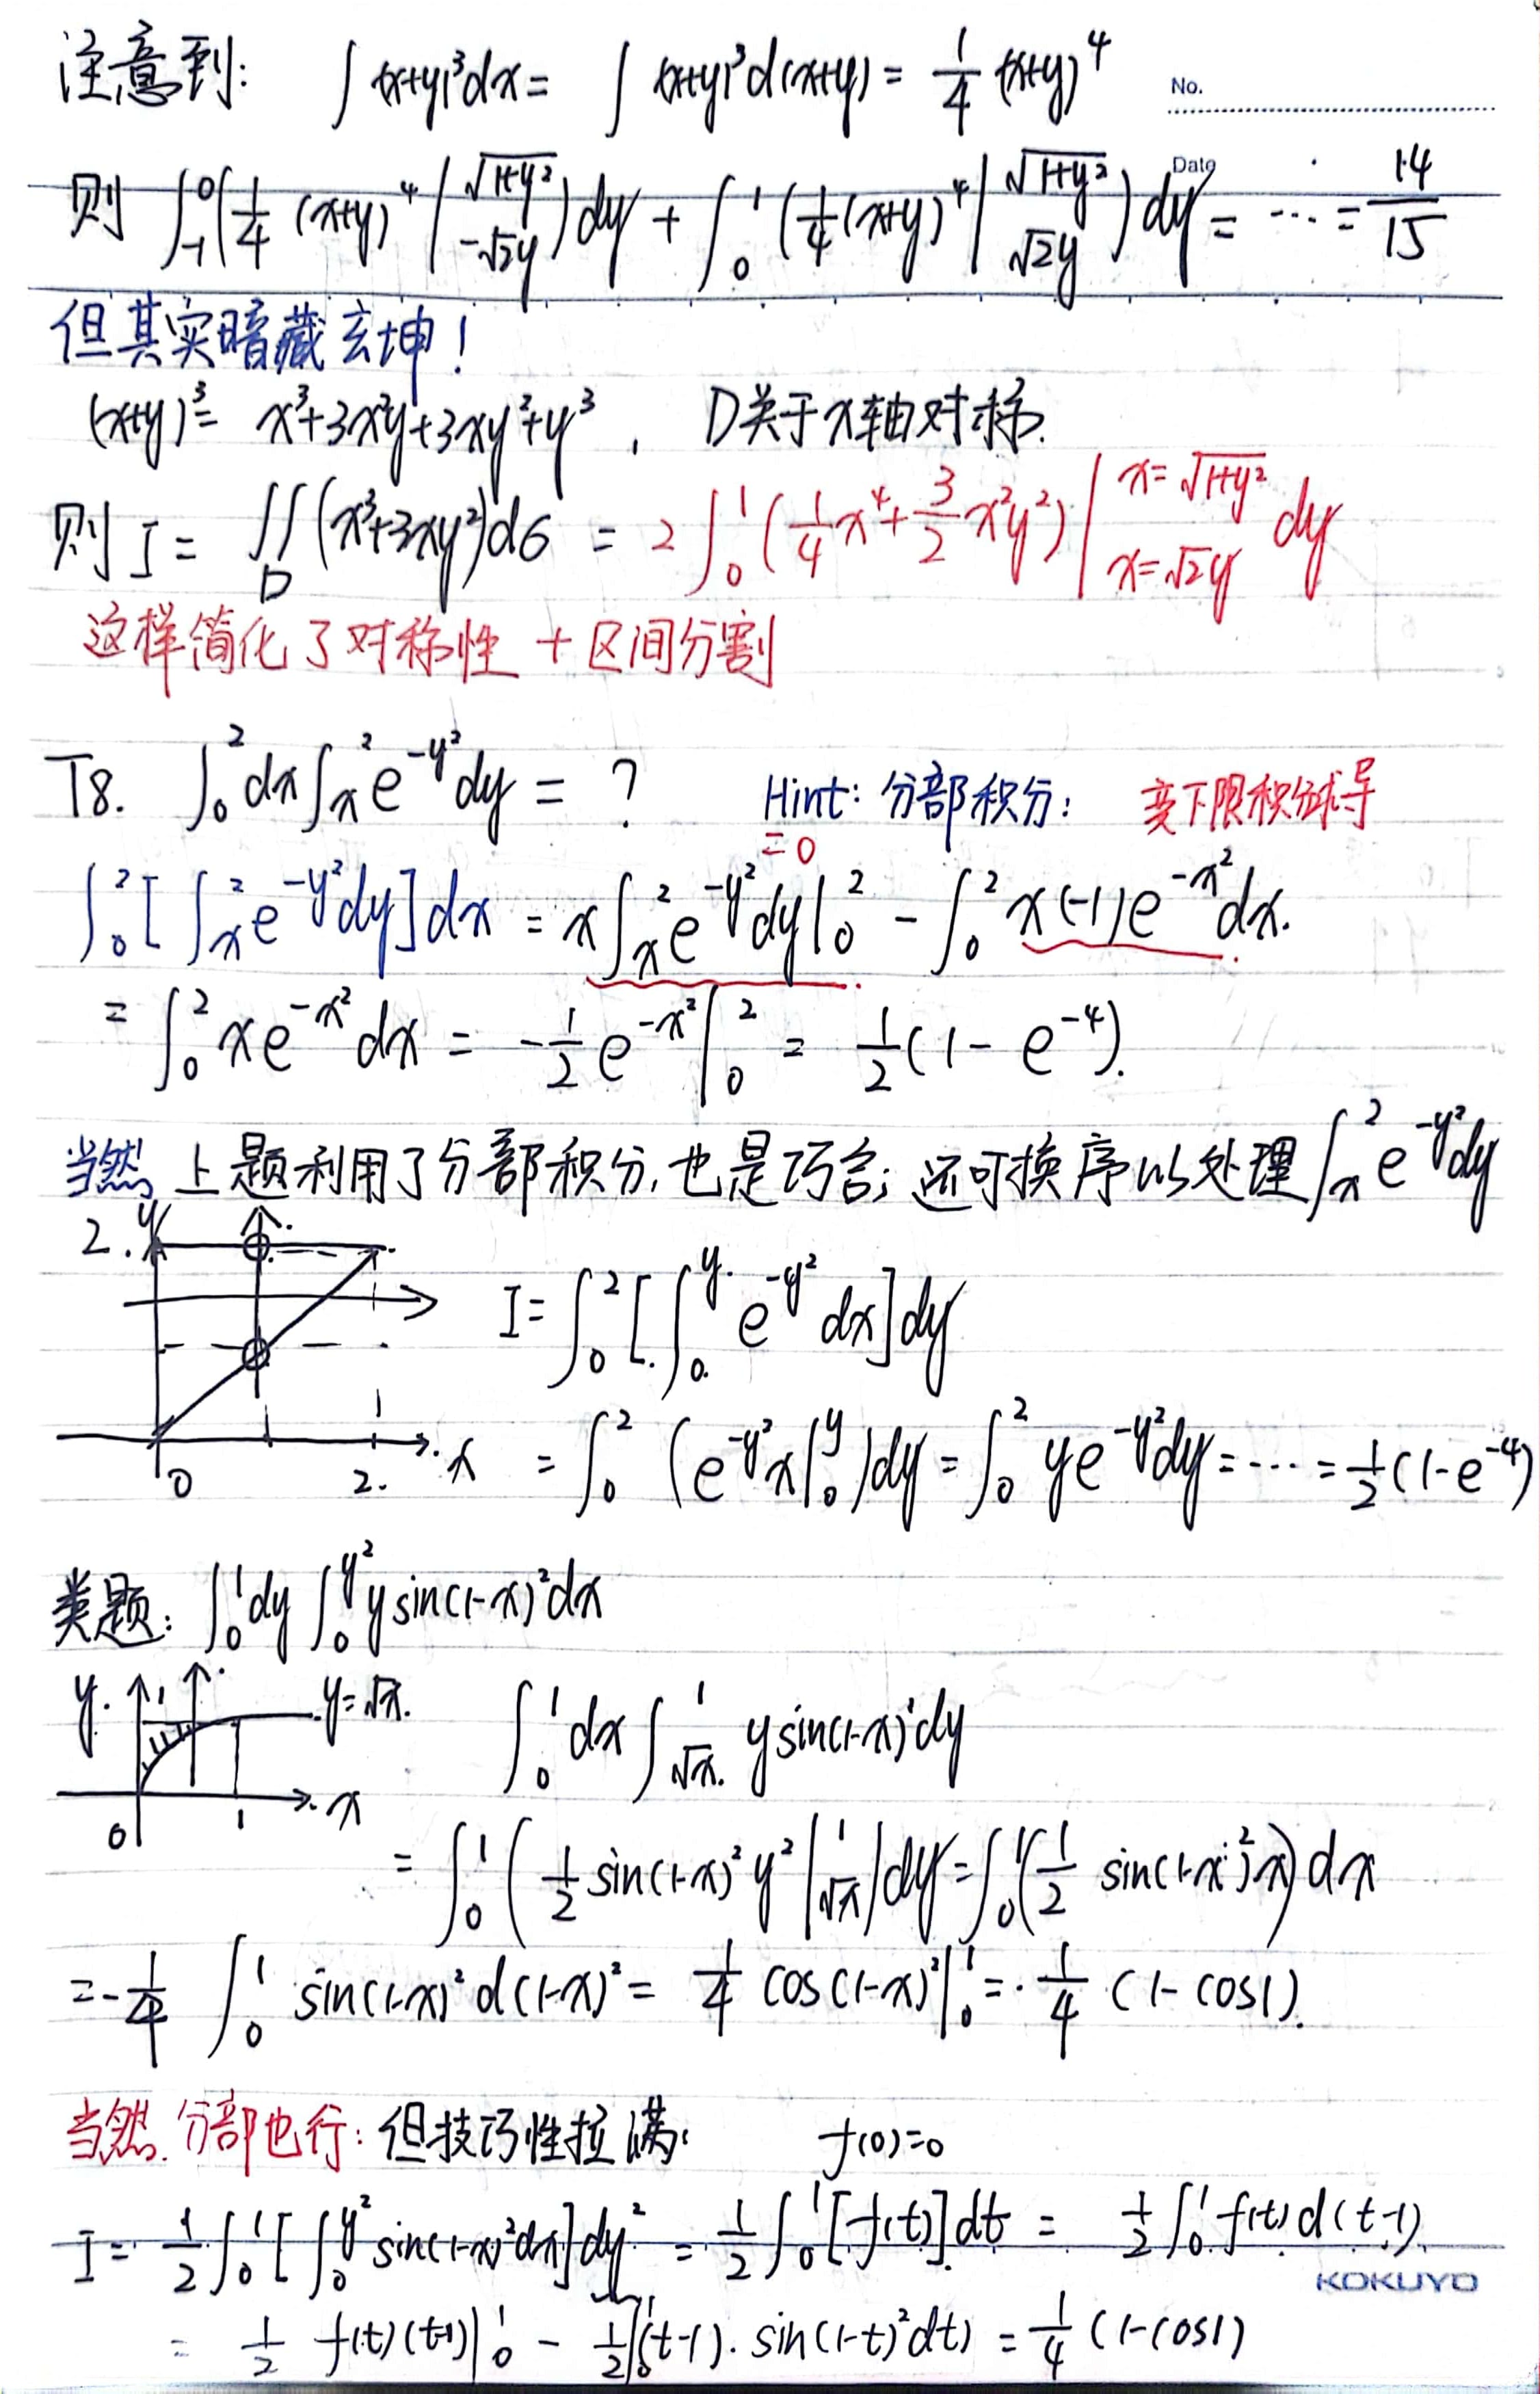 注意到: ∫(x+y)³dx = ∫(x+y)³d(x+y) = 1/4 (x+y)⁴
No.
Date
则 ∫₋₁⁰(1/4 (x+y)⁴ |_{-√2y}^{√(1+y²)})dy + ∫₀¹(1/4(x+y)⁴|_{√2y}^{√(1+y²)})dy = ⋯ = 14/15
但其实暗藏玄坤!
(x+y)³= x³+3x²y+3xy²+y³, D关于x轴对称.
则 I = ∬_D (x³+3xy²)dσ = 2∫₀¹(1/4 x⁴+3/2 x²y²)|_{x=√2y}^{x=√(1+y²)} dy
这样简化了对称性 + 区间分割
T8. ∫₀² dx∫ₓ² e^{-y²}dy = ? Hint: 分部积分: 变下限积分求导
=0
∫₀²[∫ₓ² e^{-y²}dy]dx = x∫ₓ² e^{-y²}dy|₀² - ∫₀² x(-1)e^{-x²}dx.
= ∫₀² xe^{-x²}dx = -1/2 e^{-x²}|₀² = 1/2(1-e^{-4}).
当然, 上题利用了分部积分, 也是巧合; 还可换序以处理∫ₓ² e^{-y²}dy
2. y
I= ∫₀²[∫₀^y e^{-y²}dx]dy
0 2. x = ∫₀² (e^{-y²}x|₀^y)dy = ∫₀² ye^{-y²}dy = ⋯ = 1/2(1-e^{-4})
类题: ∫₀¹dy∫₀^{y²} y sin(1-x)²dx
y. 1 y=√x. ∫₀¹dx∫_{√x}¹ y sin(1-x)²dy
0 1 x
= ∫₀¹(1/2 sin(1-x)² y²|_{√x}¹)dy = ∫₀¹(1/2 sin(1-x)²x)dx
=-1/4 ∫₀¹ sin(1-x)² d(1-x)² = 1/4 cos(1-x)²|₀¹ = 1/4 (1-cos1).
当然. 分部也行: 但技巧性拉满. f(0)=0
I = 1/2∫₀¹[∫₀^{y²} sin(1-x)²dx]dy² = 1/2∫₀¹[f(t)]dt = 1/2∫₀¹ f(t)d(t-1).
KOKUYO
= 1/2 f(t)(t-1)|₀¹ - 1/2∫₀¹(t-1)·sin(1-t)²dt) = 1/4 (1-cos1)